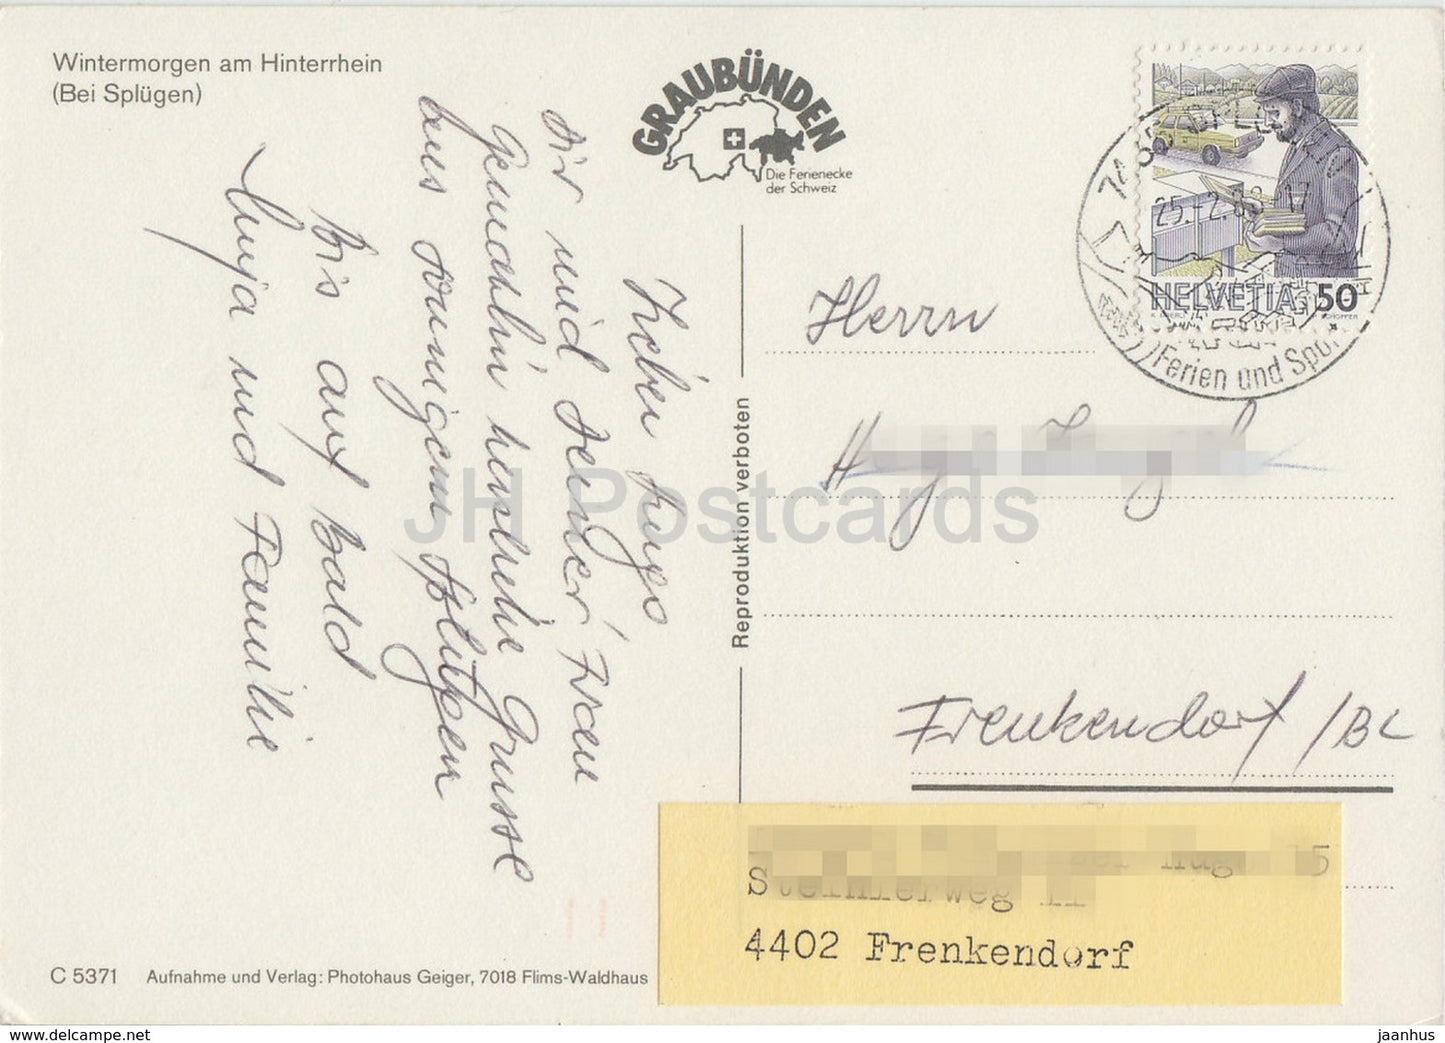 Wintermorgen am Hinterrhein
(Bei Splügen)
GRAUBÜNDEN
Die Ferienecke
der Schweiz
Lieber Hugo
Dir und Deiner Frau
Gemahlin herzliche Grüsse
aus sonnigem Splügen
Bis auf bald
und Familie
Reproduktion verboten
HELVETIA 50
25.-2.89-17
Ferien und Spor
Herrn
Frenkendorf /BL
4402 Frenkendorf
C 5371 Aufnahme und Verlag: Photohaus Geiger, 7018 Flims-Waldhaus
JH Postcards
www.delcampe.net
jaanhus